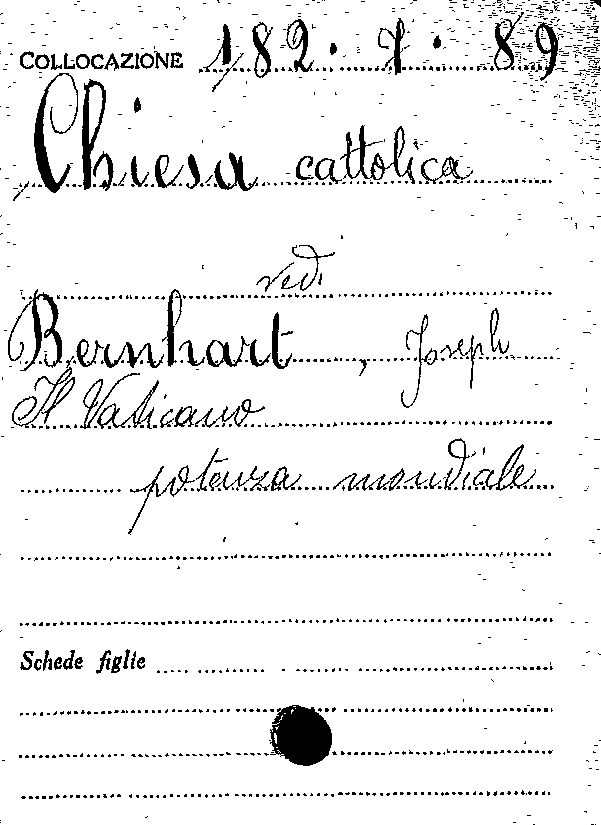 COLLOCAZIONE 182. 7. 89
Chiesa cattolica
vedi
Bernhart, Joseph
Il Vaticano
potenza mondiale
Schede figlie